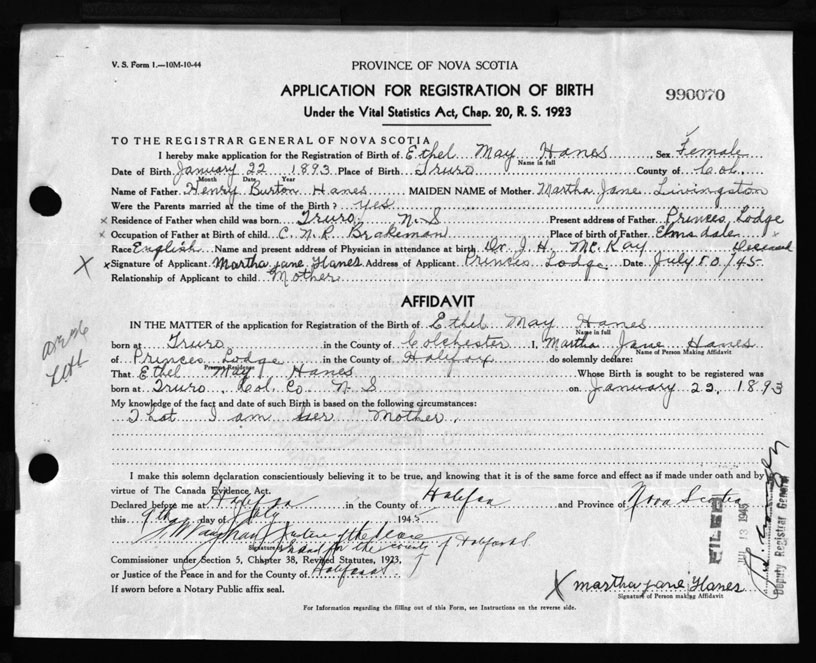 V. S. Form 1.—10M-10-44
PROVINCE OF NOVA SCOTIA
APPLICATION FOR REGISTRATION OF BIRTH
990070
Under the Vital Statistics Act, Chap. 20, R. S. 1923
TO THE REGISTRAR GENERAL OF NOVA SCOTIA
I hereby make application for the Registration of Birth of Ethel May Hanes Sex Female
Name in full
Date of Birth January 22 1893 Place of Birth Truro County of Col.
Month Date Year
Name of Father Henry Burton Hanes MAIDEN NAME of Mother Martha Jane Livingston
Were the Parents married at the time of the Birth? yes
x Residence of Father when child was born Truro, N.S Present address of Father Princes Lodge
x Occupation of Father at Birth of child C. N. R. Brakeman Place of birth of Father Elmsdale x
Race English Name and present address of Physician in attendance at birth Dr. J. H. McKay Deceased
X x Signature of Applicant Martha jane Hanes Address of Applicant Princes Lodge Date July 10/45
Relationship of Applicant to child Mother
AFFIDAVIT
IN THE MATTER of the application for Registration of the Birth of Ethel May Hanes
Name in full
born at Truro in the County of Colchester I, Martha Jane Hanes
Name of Person Making Affidavit
of Princes Lodge in the County of Halifax do solemnly declare:
Present Residence
That Ethel May Hanes Whose Birth is sought to be registered was
born at Truro Col. Co N S on January 22, 1893
My knowledge of the fact and date of such Birth is based on the following circumstances:
That I am her Mother.
I make this solemn declaration conscientiously believing it to be true, and knowing that it is of the same force and effect as if made under oath and by
virtue of The Canada Evidence Act.
Declared before me at Halifax in the County of Halifax and Province of Nova Scotia
this day of July 1945
Justice of the Peace
Signature
in and for the county of Halifax
Commissioner under Section 5, Chapter 38, Revised Statutes, 1923,
or Justice of the Peace in and for the County of Halifax
If sworn before a Notary Public affix seal.
X Martha jane Hanes
Signature of Person making Affidavit
For Information regarding the filling out of this Form, see Instructions on the reverse side.
FILED
13 1945
Deputy Registrar General